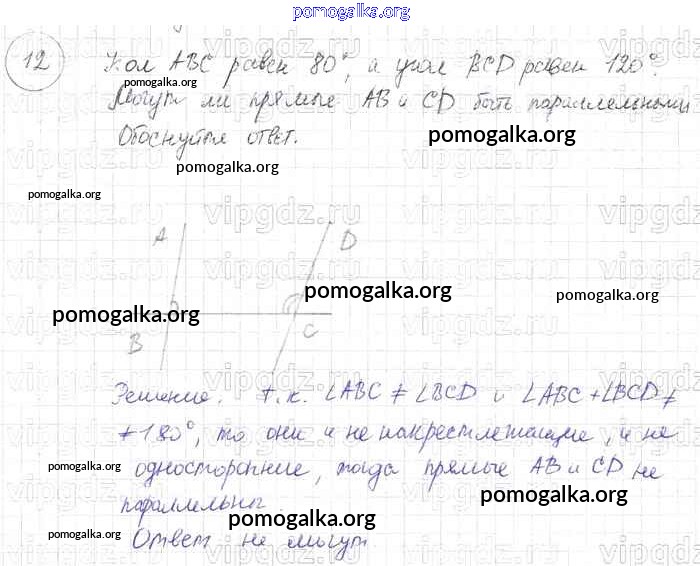 pomogalka.org
12 Угол ABC равен 80°, а угол BCD равен 120°.
Могут ли прямые AB и CD быть параллельными
Обоснуйте ответ.
pomogalka.org
pomogalka.org
pomogalka.org
vipgdz.ru vipgdz.ru vipgdz.ru
A D
pomogalka.org
pomogalka.org
pomogalka.org
B C
Решение. т.к. ∠ABC ≠ ∠BCD и ∠ABC + ∠BCD ≠
≠ 180°, то они и не накрестлежащие, и не
pomogalka.org
односторонние, тогда прямые AB и CD не
pomogalka.org
параллельны.
pomogalka.org
pomogalka.org
pomogalka.org
Ответ не могут.